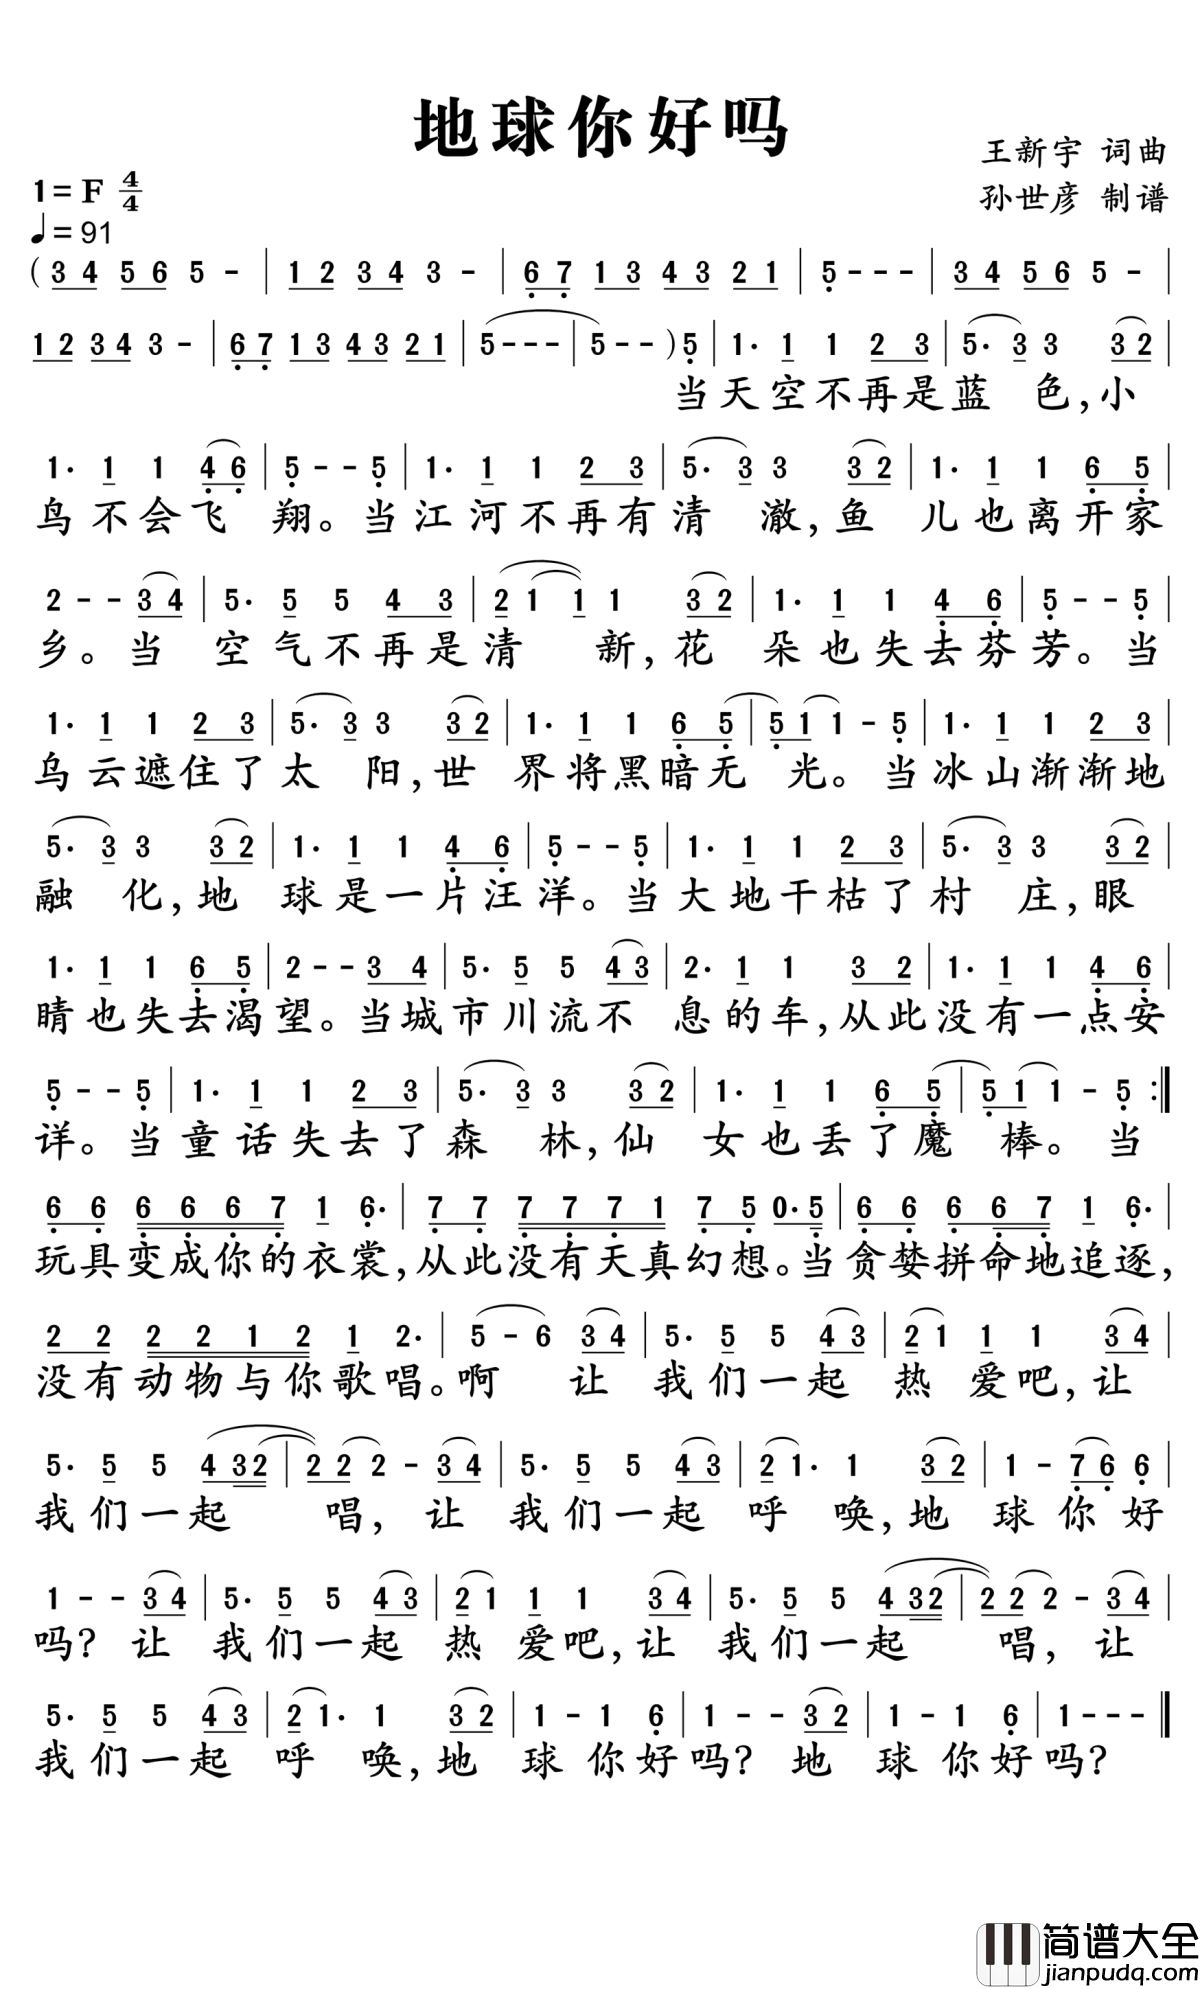 地球你好吗
王新宇 词曲
1= F 4/4
孙世彦 制谱
♩= 91
( 3 4 5 6 5 - | 1 2 3 4 3 - | 6 7 1 3 4 3 2 1 | 5 - - - | 3 4 5 6 5 - |
1 2 3 4 3 - | 6 7 1 3 4 3 2 1 | 5 - - - | 5 - - ) 5 | 1· 1 1 2 3 | 5· 3 3 3 2 |
当天空不再是蓝 色,小
1· 1 1 4 6 | 5 - - 5 | 1· 1 1 2 3 | 5· 3 3 3 2 | 1· 1 1 6 5 |
鸟不会飞 翔。当江河不再有清 澈,鱼 儿也离开家
2 - - 3 4 | 5· 5 5 4 3 | 2 1 1 1 3 2 | 1· 1 1 4 6 | 5 - - 5 |
乡。当 空气不再是清 新,花 朵也失去芬芳。当
1· 1 1 2 3 | 5· 3 3 3 2 | 1· 1 1 6 5 | 5 1 1 - 5 | 1· 1 1 2 3 |
乌云遮住了太 阳,世 界将黑暗无 光。当冰山渐渐地
5· 3 3 3 2 | 1· 1 1 4 6 | 5 - - 5 | 1· 1 1 2 3 | 5· 3 3 3 2 |
融 化,地 球是一片汪洋。当大地干枯了村 庄,眼
1· 1 1 6 5 | 2 - - 3 4 | 5· 5 5 4 3 | 2· 1 1 3 2 | 1· 1 1 4 6 |
睛也失去渴望。当城市川流不 息的车,从此没有一点安
5 - - 5 | 1· 1 1 2 3 | 5· 3 3 3 2 | 1· 1 1 6 5 | 5 1 1 - 5 :|
详。当童话失去了森 林,仙 女也丢了魔 棒。当
6 6 6 6 6 7 1 6· | 7 7 7 7 7 1 7 5 0· 5 | 6 6 6 6 7 1 6· |
玩具变成你的衣裳,从此没有天真幻想。当贪婪拼命地追逐,
2 2 2 2 1 2 1 2· | 5 - 6 3 4 | 5· 5 5 4 3 | 2 1 1 1 3 4 |
没有动物与你歌唱。啊 让 我们一起 热 爱吧,让
5· 5 5 4 3 2 | 2 2 2 - 3 4 | 5· 5 5 4 3 | 2 1· 1 3 2 | 1 - 7 6 6 |
我们一起 唱,让 我们一起 呼 唤,地 球你好
1 - - 3 4 | 5· 5 5 4 3 | 2 1 1 1 3 4 | 5· 5 5 4 3 2 | 2 2 2 - 3 4 |
吗?让 我们一起 热 爱吧,让 我们一起 唱,让
5· 5 5 4 3 | 2 1· 1 3 2 | 1 - 1 6 | 1 - - 3 2 | 1 - 1 6 | 1 - - - |
我们一起 呼 唤,地 球你好吗?地 球你好吗?
简谱大全
jianpudq.com